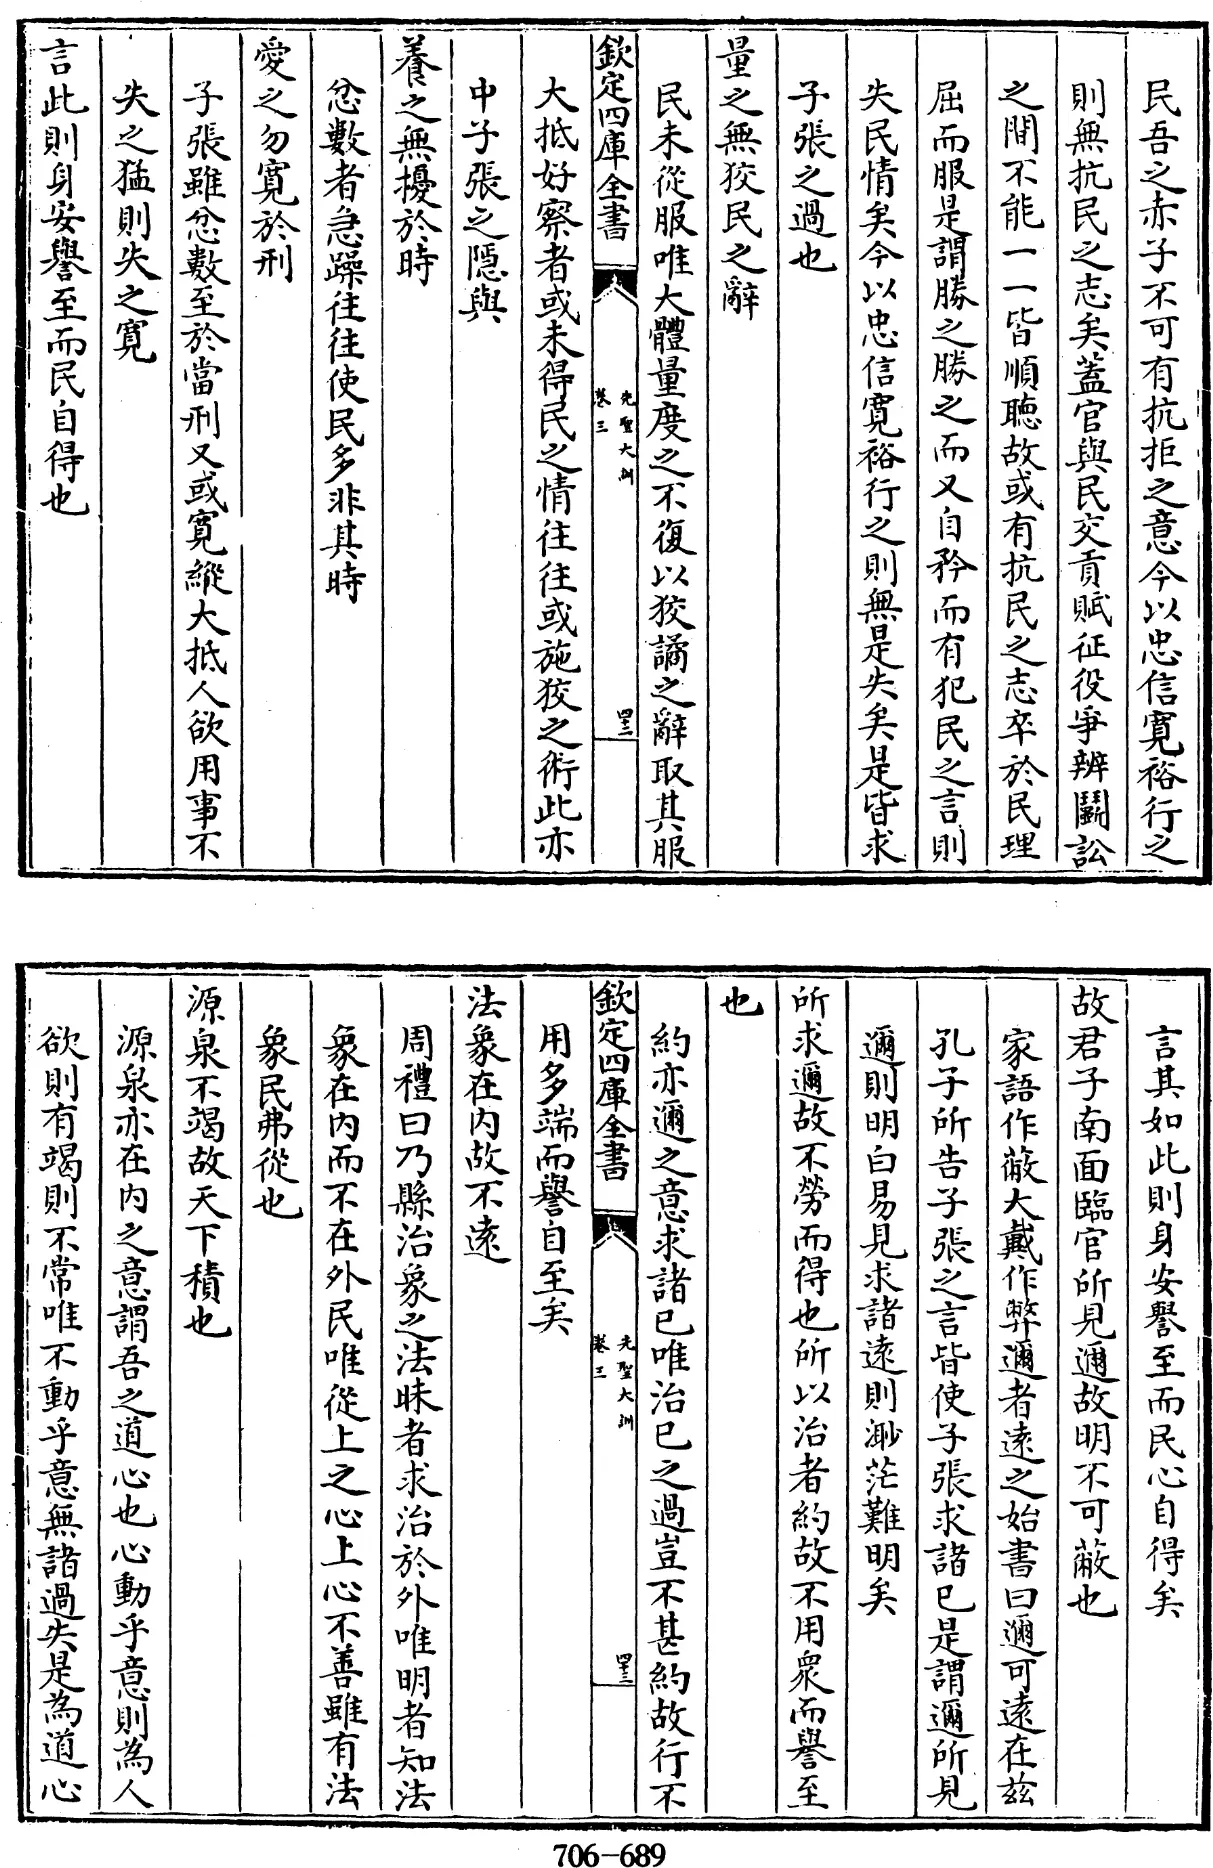 民吾之赤子不可有抗拒之意今以忠信寛裕行之
則無抗民之志矣蓋官與民交貢賦征役爭辨鬭訟
之間不能一一皆順聽故或有抗民之志卒於民理
屈而服是謂勝之勝之而又自矜而有犯民之言則
失民情矣今以忠信寛裕行之則無是失矣是皆求
子張之過也
量之無狡民之辭
民未從服唯大體量度之不復以狡譎之辭取其服
欽定四庫全書
先聖大訓
卷三
四十二
大抵好察者或未得民之情往往或施狡之術此亦
中子張之隱與
養之無擾於時
忿數者急躁往往使民多非其時
愛之勿寛於刑
子張雖忿數至於當刑又或寛縱大抵人欲用事不
失之猛則失之寛
言此則身安譽至而民自得也
言其如此則身安譽至而民心自得矣
故君子南面臨官所見邇故明不可蔽也
家語作蔽大戴作弊邇者遠之始書曰邇可遠在茲
孔子所告子張之言皆使子張求諸已是謂邇所見
邇則明白易見求諸遠則渺茫難明矣
所求邇故不勞而得也所以治者約故不用衆而譽至
也
約亦邇之意求諸已唯治已之過豈不甚約故行不
欽定四庫全書
先聖大訓
卷三
四十三
用多端而譽自至矣
法象在内故不遠
周禮曰乃縣治象之法昧者求治於外唯明者知法
象在内而不在外民唯從上之心上心不善雖有法
象民弗從也
源泉不竭故天下積也
源泉亦在内之意謂吾之道心也心動乎意則為人
欲則有竭則不常唯不動乎意無諸過失是為道心
706-689